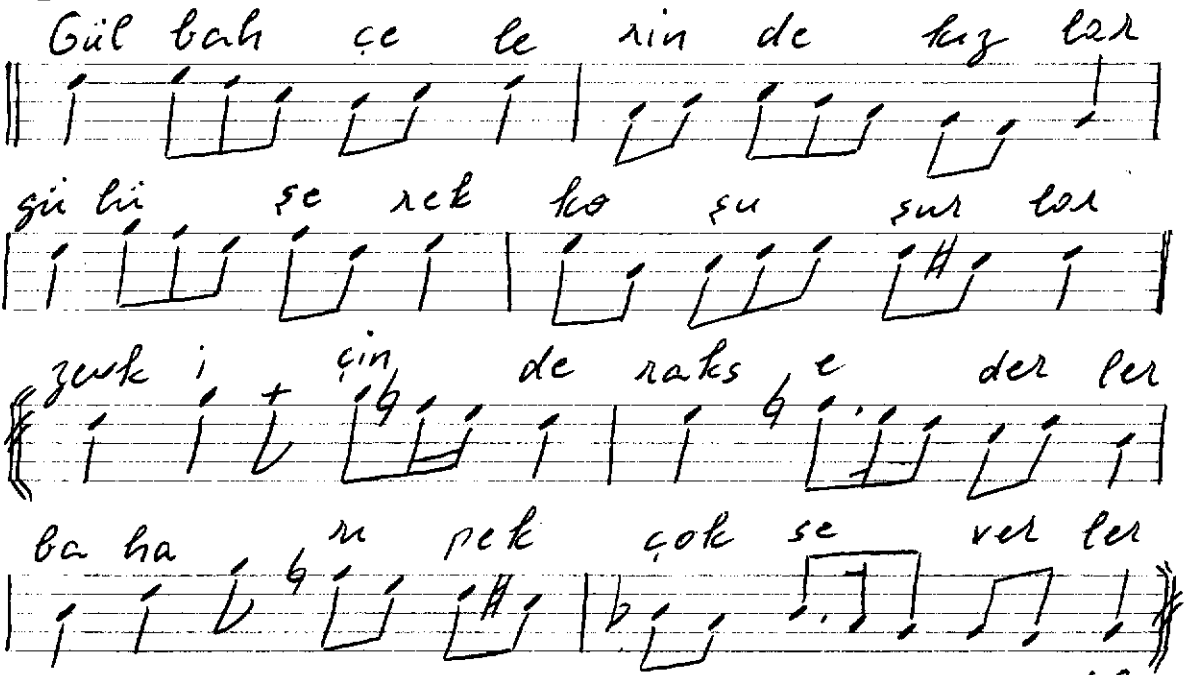 Gül bah çe le rin de kız lar
gü lü şe rek ko şu şur lar
zevk i çin de raks e der ler
ba ha rı pek çok se ver ler